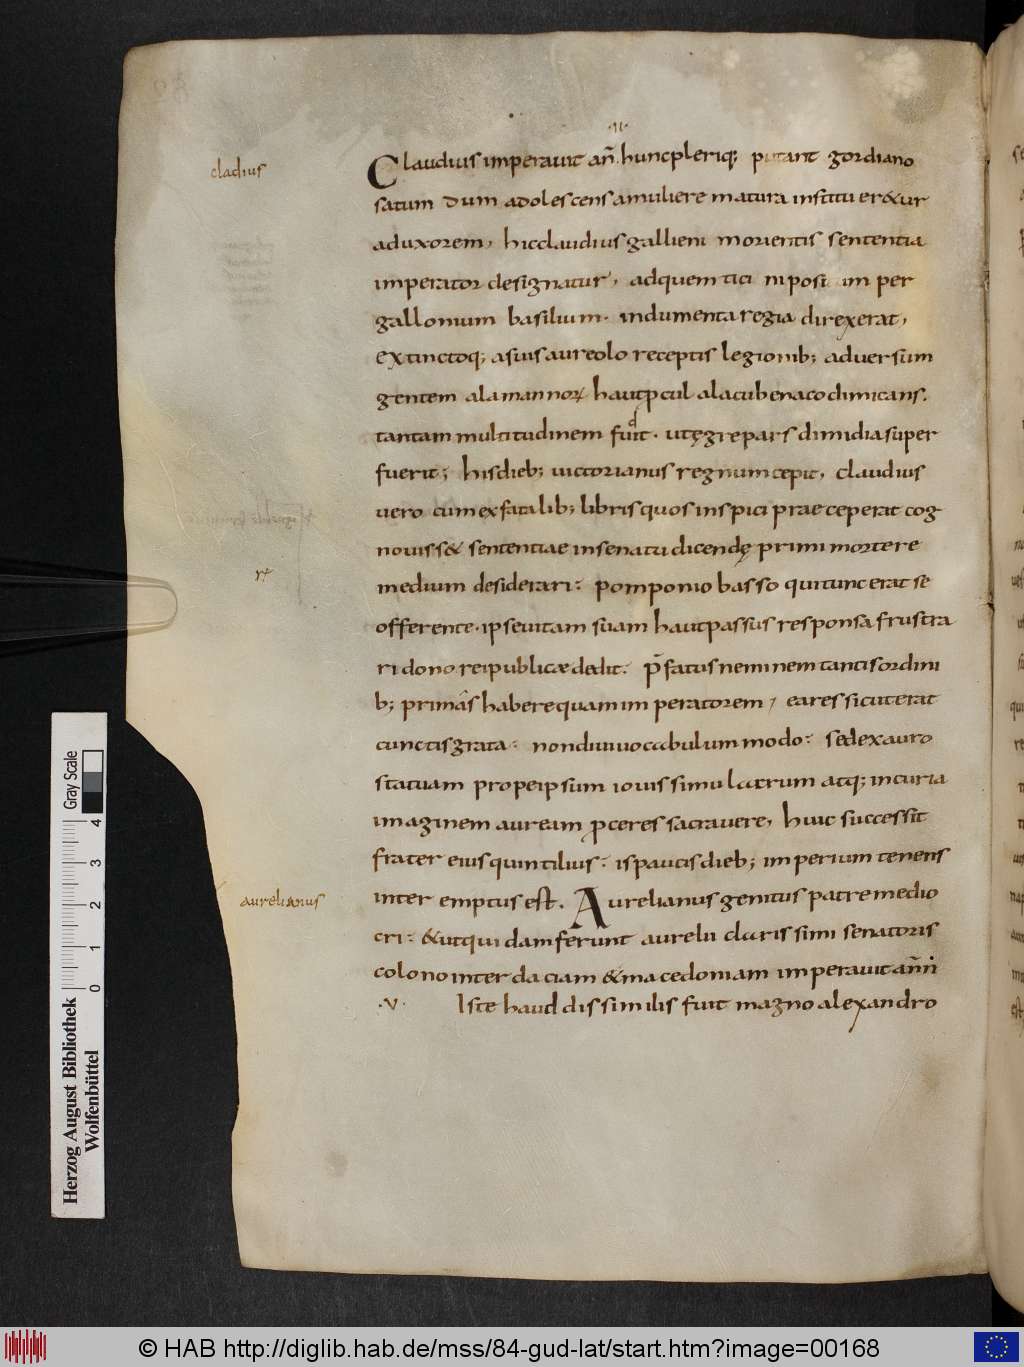 ·11·
cladius
Claudius imperauit añ. hunc pleriq; putant gordiano
satum dum adolescens a muliere matura institueret&ur
ad uxorem, hic claudius gallieni morientis sententia
imperator designatur, ad quem tici ni posi im per
gallonium basilium. indumenta regia direxerat,
extinctoq; a suis aureolo receptis legionib; aduersum
gentem alamannoꝝ haut ꝓcul a lacu benaco dimicans.
tantam multitudinem fudit. ut ęgre pars dimidia super
fuerit; his dieb; uictorianus regnum cepit, claudius
uero cum ex fatalib; libris quos inspici praeceperat cog
nouiss& sententiae in senatu dicendę primi mortere
medium desiderari: pomponio basso qui tunc erat se
offerente. ipse uitam suam haut passus responsa frustra
ri dono reipublicæ dedit. p̄fatus neminem tanti sordini
b; primas habere quam imperatorem, ea res sicut erat
cunctis grata: non diui uocabulum modo: sed ex auro
statuam prope ipsum iouis simulacrum atq; in curia
imaginem auream ꝓceres sacrauere, huic successit
frater eius quintilius: is paucis dieb; imperium tenens
interemptus est. Aurelianus genitus patre medio
aurelianus
cri: & ut quidam ferunt aurelii clarissimi senatoris
colono inter daciam & macedoniam imperauit añ
·v· Iste haud dissimilis fuit magno alexandro
Herzog August Bibliothek
Wolfenbüttel
0 1 2 3 4
Gray Scale
© HAB http://diglib.hab.de/mss/84-gud-lat/start.htm?image=00168